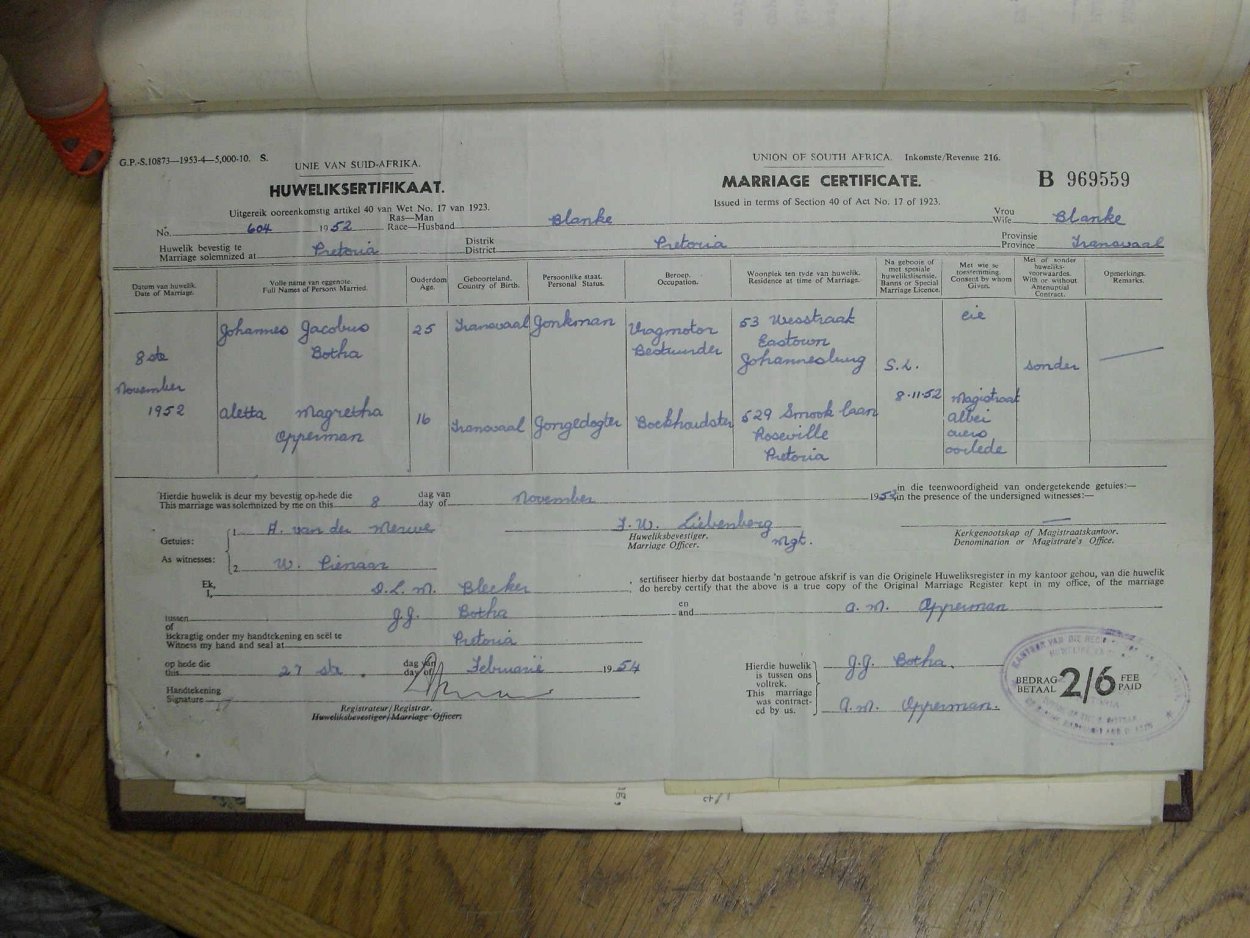 G.P.-S.10873—1953-4—5,000-10. S.
UNIE VAN SUID-AFRIKA.
UNION OF SOUTH AFRICA. Inkomste/Revenue 216.
HUWELIKSERTIFIKAAT.
MARRIAGE CERTIFICATE.
B 969559
Uitgereik ooreenkomstig artikel 40 van Wet No. 17 van 1923.
Issued in terms of Section 40 of Act No. 17 of 1923.
No. 604 1952 Ras—Man Race—Husband Blanke Vrou Wife Blanke
Huwelik bevestig te Marriage solemnized at Pretoria Distrik District Pretoria Provinsie Province Transvaal
Datum van huwelik. Date of Marriage.
Volle name van eggenote. Full Names of Persons Married.
Ouderdom Age.
Geboorteland. Country of Birth.
Persoonlike staat. Personal Status.
Beroep. Occupation.
Woonplek ten tyde van huwelik. Residence at time of Marriage.
Na gebooie of met spesiale huwelikslisensie. Banns or Special Marriage Licence.
Met wie se toestemming. Consent by whom Given.
Met of sonder huweliks-voorwaardes. With or without Antenuptial Contract.
Opmerkings. Remarks.
8ste November 1952
Johannes Jacobus Botha
25
Transvaal
Jonkman
Vragmotor Bestuurder
53 Wesstraat Eastown Johannesburg
S.L. 8-11-52
eie
sonder
Aletta Magretha Opperman
16
Transvaal
Jongedogter
Boekhoudster
529 Smook laan Roseville Pretoria
Magistraat Albei ouers oorlede
Hierdie huwelik is deur my bevestig op-hede die 8 dag van November 1952 in die teenwoordigheid van ondergetekende getuies:—
This marriage was solemnized by me on this day of in the presence of the undersigned witnesses:—
Getuies: As witnesses:
1. H. van der Merwe
2. W. Pienaar
J. W. Liebenberg
Huweliksbevestiger. Marriage Officer. Mgt.
Kerkgenootskap of Magistraatskantoor.
Denomination or Magistrate's Office.
Ek, I, D.L.M. Blecker, sertifiseer hierby dat bostaande 'n getroue afskrif is van die Originele Huweliksregister in my kantoor gehou, van die huwelik
do hereby certify that the above is a true copy of the Original Marriage Register kept in my office, of the marriage
tussen of J.J. Botha en and A. M. Opperman
Bekragtig onder my handtekening en seël te
Witness my hand and seal at Pretoria
op hede die this 27ste dag van day of Februarie 1954
Handtekening
Signature
Registrateur/Registrar.
Huweliksbevestiger/Marriage Officer.
Hierdie huwelik is tussen ons voltrek.
This marriage was contracted by us.
J.J. Botha.
A.M. Opperman.
BEDRAG BETAAL 2/6 FEE PAID